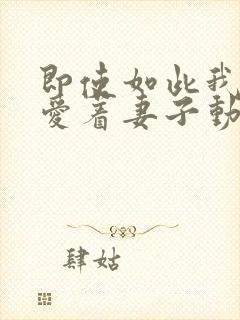 即使如此我
爱着妻子動
肆姑